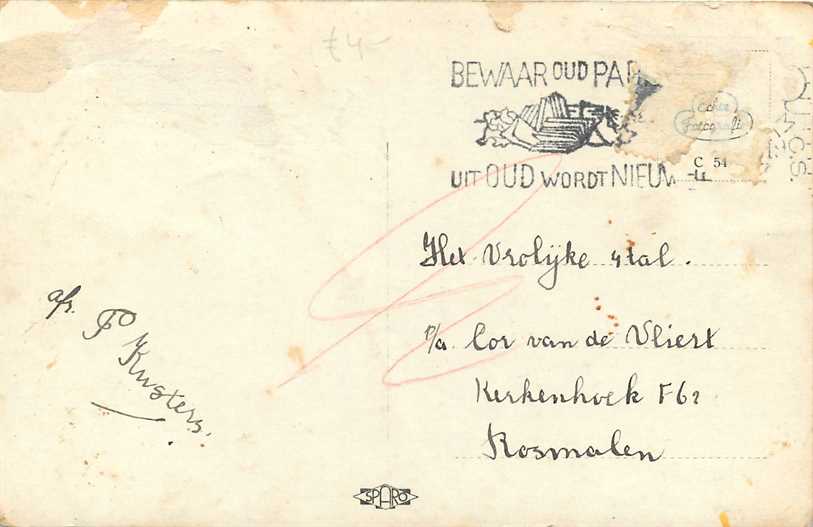 £4-
BEWAAR OUD PAP
UIT OUD WORDT NIEUW
Echte
Fotografie
C 54
Het Vrolijke 4tal.
p/a Cor van de Vliert
Kerkenhoek F62
Rosmalen
afz. P Kusters.
SPARO